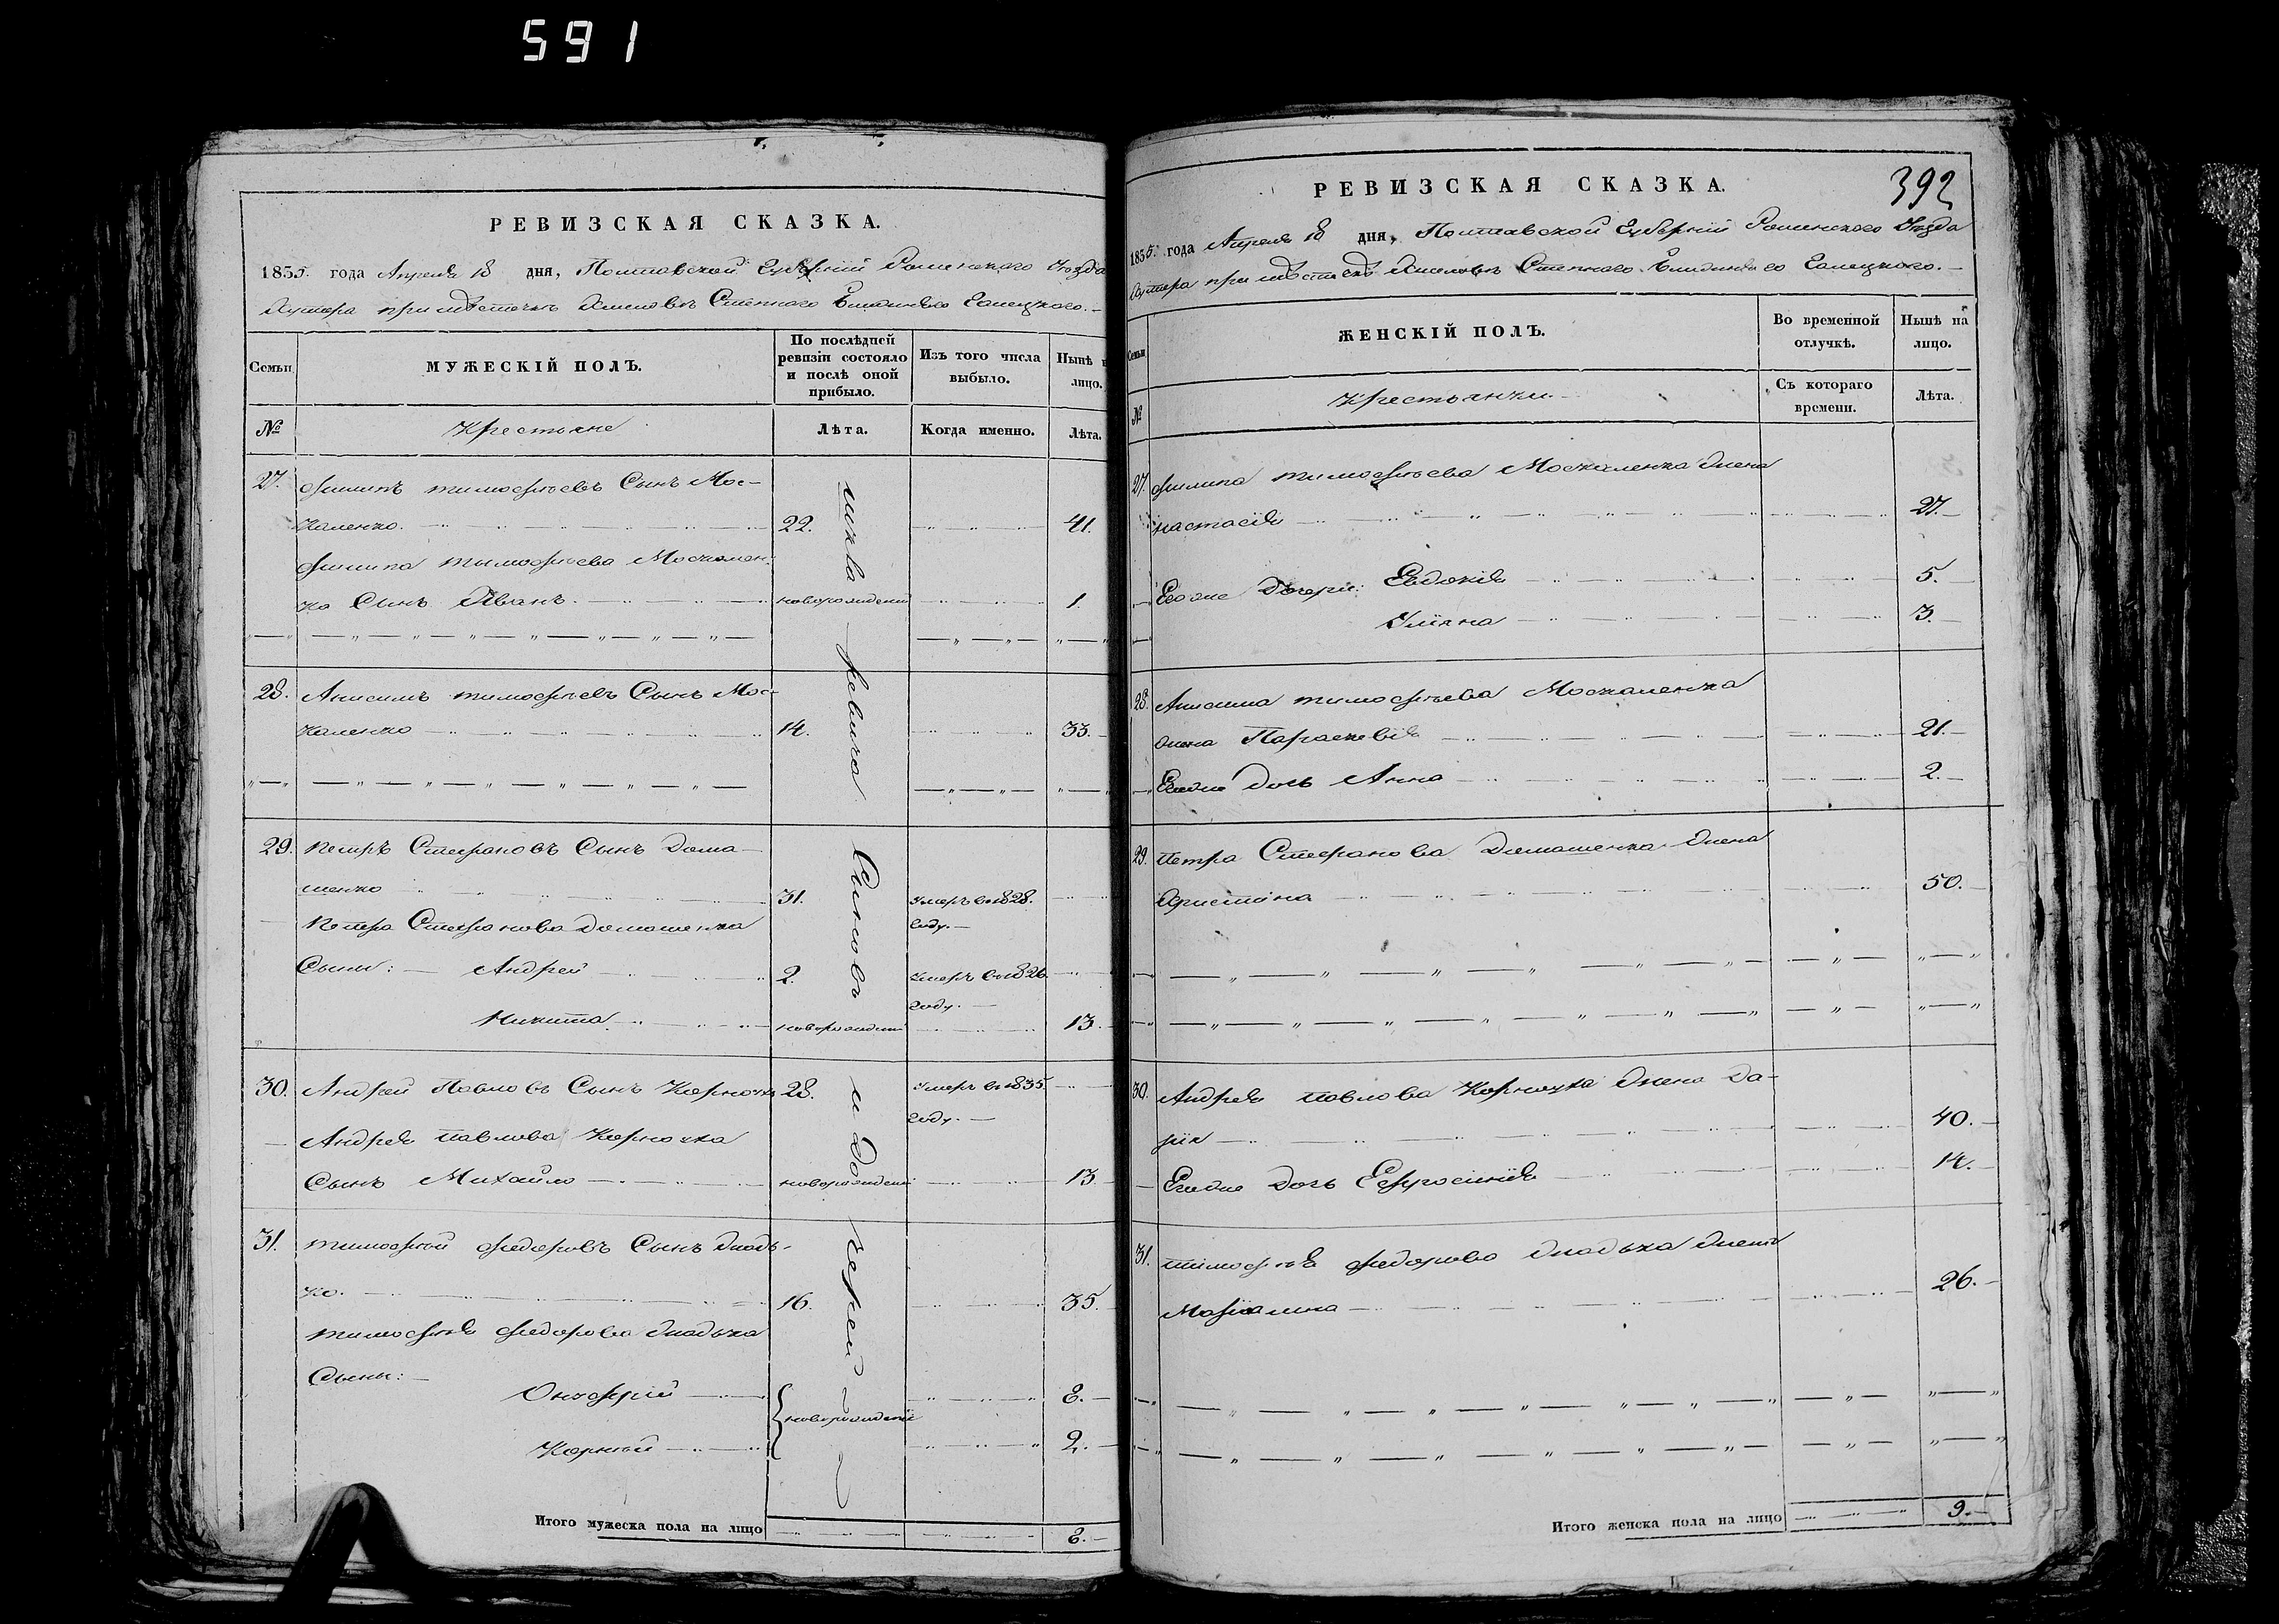 591
РЕВИЗСКАЯ СКАЗКА.
1835. года Апреля 18 дня, Полтавской Губерніи Роменского Уезда
Хутора при местечке Степного
Семьи
МУЖЕСКІЙ ПОЛЪ.
По послѣдней ревизіи состояло и послѣ оной прибыло.
Изъ того числа выбыло.
Нынѣ
лицо.
№
Крестьяне
Лѣта.
Когда именно.
Лѣта.
27. Филипъ тимофѣевъ Сынъ Мос-
каленко. 22. 41.
Филипа тимофѣева Москален-
ка Сынъ Иванъ. новорожденый 1.
28. Анисимъ тимофѣевъ Сынъ Мос-
каленко 14. 33.
29. петръ Стефановъ Сынъ Дома-
шенко 31. Умеръ в 1828.
году.
петра Стефанова Домашенка
Сыны: Андрей 2. Умеръ в 1826
году.
никита новорожденый 13.
30. Андрей Павловъ Сынъ 28. Умеръ в 1835
году.
Андрея павлова
Сынъ Михайло новорожденый 13
31. тимофѣй федоровъ Сынъ
ко. 16. 35.
тимофѣя федорова
Сыны:
Онуфрій 8.
новорожденіе
Корнѣй 2.
Сыновъ и дочерей
Итого мужеска пола на лицо 8.
392
РЕВИЗСКАЯ СКАЗКА.
1835. года Апреля 18 дня, Полтавской Губерніи Роменского Уезда
Хутора при местечке Степного
Семьи
ЖЕНСКІЙ ПОЛЪ.
Во временной отлучкѣ.
Нынѣ на лицо.
№
Крестьянки.
Съ котораго времени.
Лѣта.
27. Филипа тимофѣева Москаленка жена
настасія 27.
Егоже дочери: Евдокія 5.
Уліяна 3.
28. Анисима тимофѣева Москаленка
жена Параскевія 21.
Егоже дочь Анна 2.
29. петра Стефанова Домашенка жена
Христина 50.
30. Андрея павлова жена Да-
рія 40.
Егоже дочь Ефросинія 14.
31. тимофѣя федорова жена
26.
Итого женска пола на лицо 9.